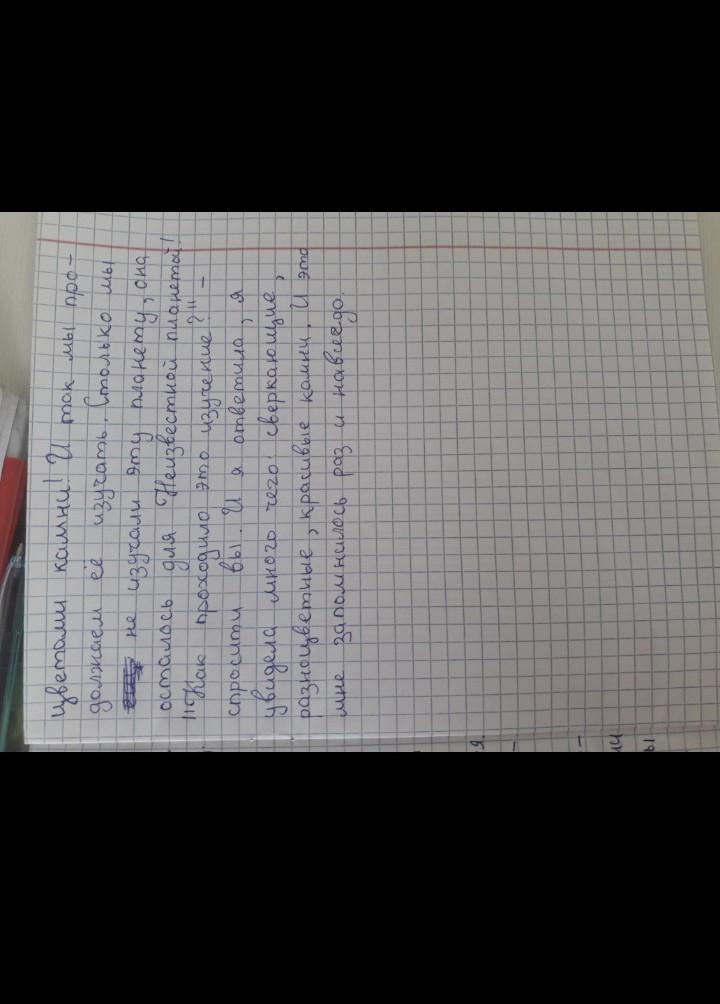 цветами камни! И так мы про-
должаем её изучать. Столько мы
не изучали эту планету, она
осталось для Неизвестной планетой!
"Как проходило это изучение?" -
спросити вы. И я ответила, я
увидела много чего: сверкающие,
разноцветные, красивые камни. И это
мне запомнилось раз и навсегда.
я.
-
-
ии
ы